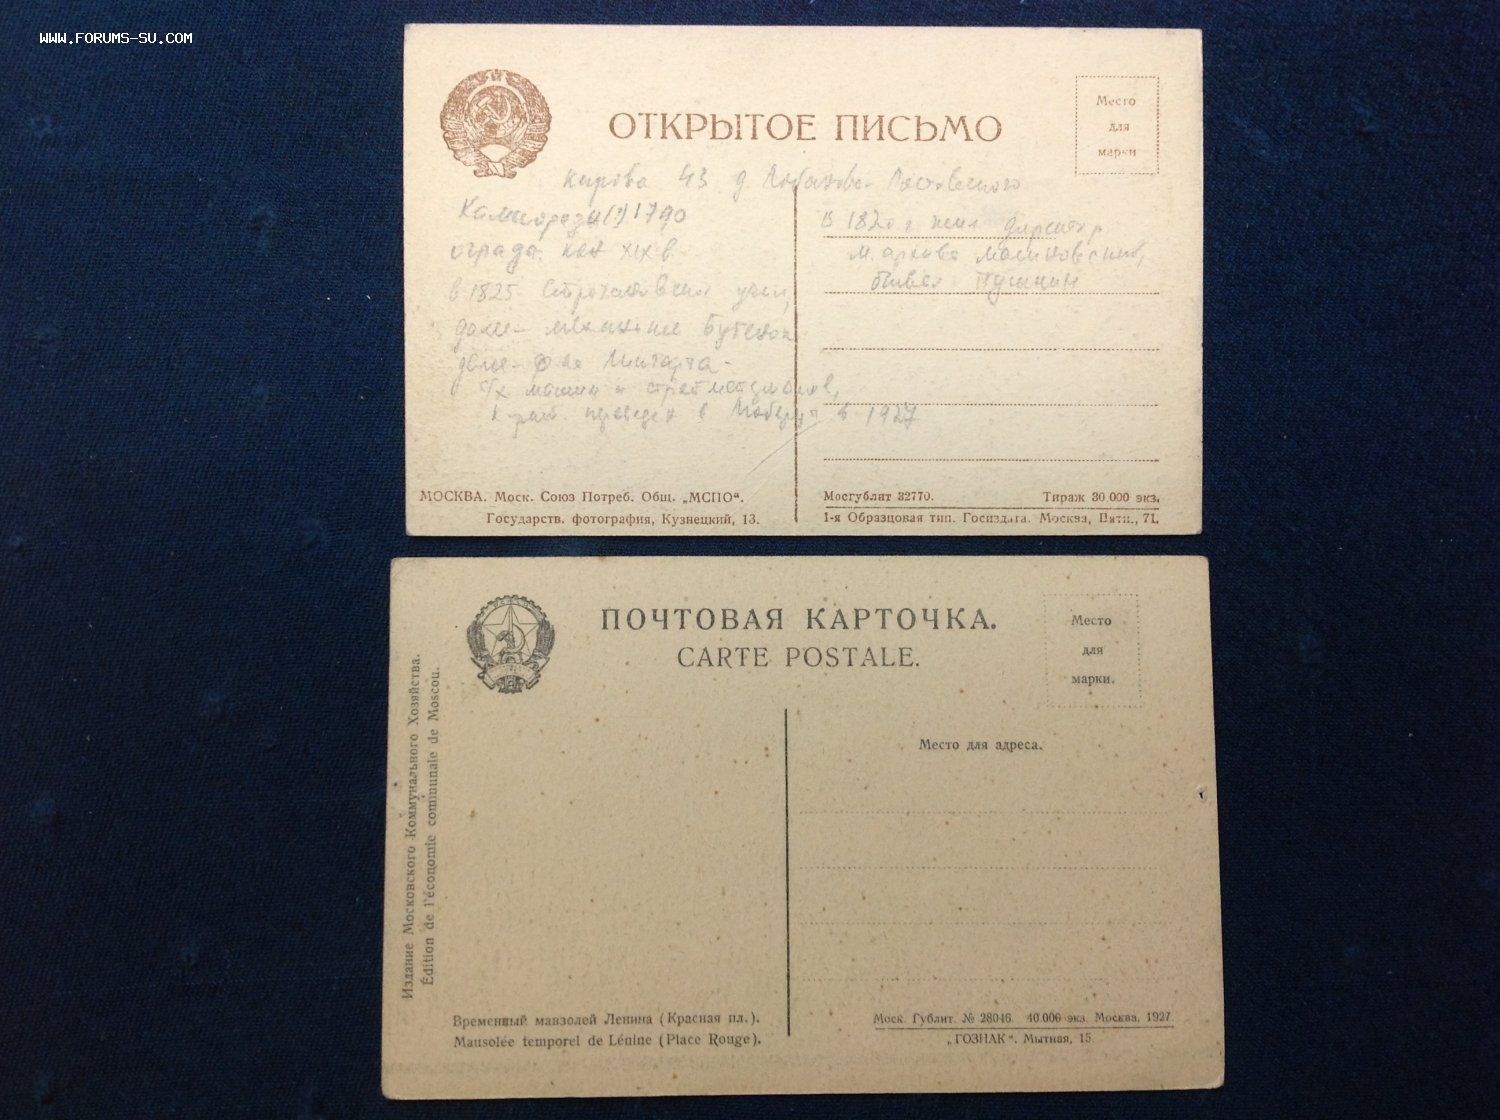 WWW.FORUMS-SU.COM
ОТКРЫТОЕ ПИСЬМО
Место
для
марки
Кирова 43 д Лобанова-Ростовского
Кампорези (?) 1790
ограда кон XIX в
в 1825 Строгановское учил,
далее - механик Бутеноп
далее - Лингарта -
с/х машин и
переведен в Люберцы в 1927
В 1820 г жил директор
м. архива Малиновский,
бывал Пушкин
МОСКВА. Моск. Союз Потреб. Общ. „МСПО“.
Государств. фотография, Кузнецкий, 13.
Мосгублит 32770. Тираж 30 000 экз.
1-я Образцовая тип. Госиздата. Москва, Пятн., 71.
ПОЧТОВАЯ КАРТОЧКА.
CARTE POSTALE.
Место
для
марки.
Место для адреса.
Издание Московского Коммунального Хозяйства.
Édition de l'économie communale de Moscou.
Временный мавзолей Ленина (Красная пл.).
Mausolée temporel de Lénine (Place Rouge).
Моск. Гублит. № 28046. 40.000 экз. Москва, 1927.
„ГОЗНАК“. Мытная, 15.